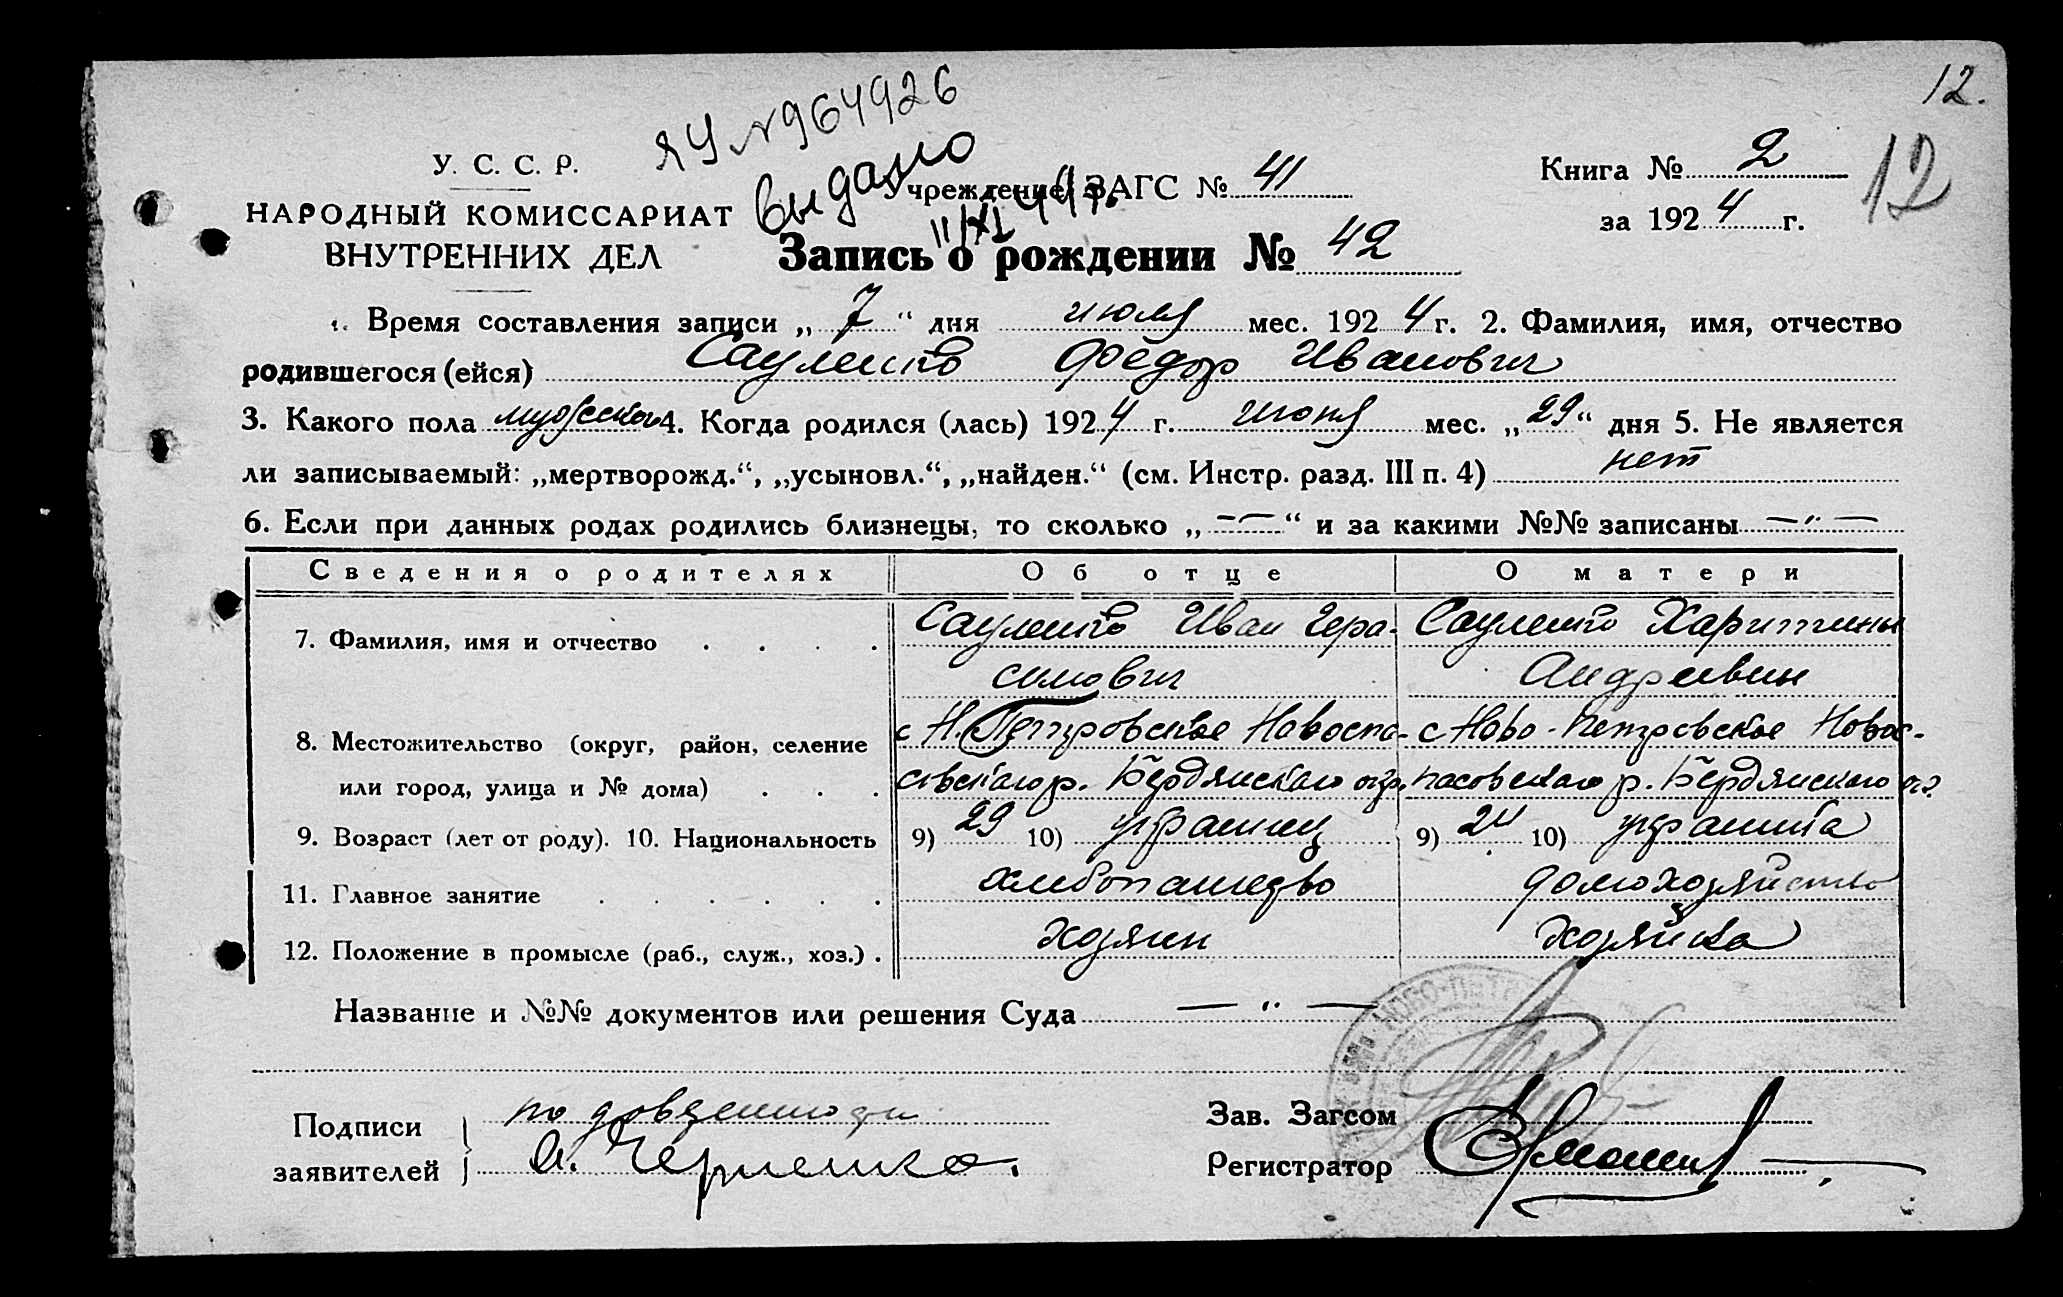 12.
ЯЧ №964926
У. С. С. Р.
НАРОДНЫЙ КОМИССАРИАТ
ВНУТРЕННИХ ДЕЛ
Выдано
Учреждение ЗАГС № 41
Книга № 2
12
за 1924 г.
Запись о рождении № 42
1. Время составления записи „7“ дня июля мес. 1924 г. 2. Фамилия, имя, отчество
родившегося (ейся) Сауленко Федор Иванович
3. Какого пола мужского 4. Когда родился (лась) 1924 г. июня мес. „29“ дня 5. Не является
ли записываемый: „мертворожд.“, „усыновл.“, „найден.“ (см. Инстр. разд. III п. 4) нет
6. Если при данных родах родились близнецы, то сколько „ — “ и за какими №№ записаны — „ —
Сведения о родителях Об отце О матери
7. Фамилия, имя и отчество Сауленко Иван Гера- Сауленко Харитины
симович Андреевны
8. Местожительство (округ, район, селение с Н. Петровское Новоспа- с Ново-Петровское Новос-
или город, улица и № дома) совского р. Бердянского окр. пасовского р. Бердянского ок.
9. Возраст (лет от роду). 10. Национальность 9) 29 10) украинец 9) 24 10) украинка
11. Главное занятие хлебопашество домохозяйство
12. Положение в промысле (раб., служ., хоз.) хозяин хозяйка
Название и №№ документов или решения Суда — „ —
Подписи по доверенности
заявителей А. Черненко.
Зав. Загсом
Регистратор